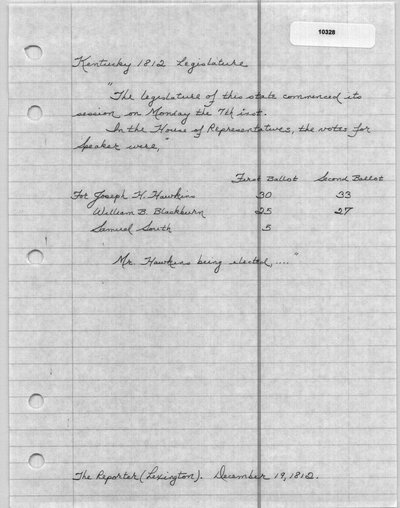 10328
Kentucky 1812 Legislature
"The legislature of this state commenced its
session on Monday the 7th inst.
In the House of Representatives, the votes for
Speaker were,
First Ballot Second Ballot
For Joseph H. Hawkins 30 33
William B. Blackburn 25 27
Samuel South 5
Mr. Hawkins being elected,...."
The Reporter (Lexington). December 19, 1812.